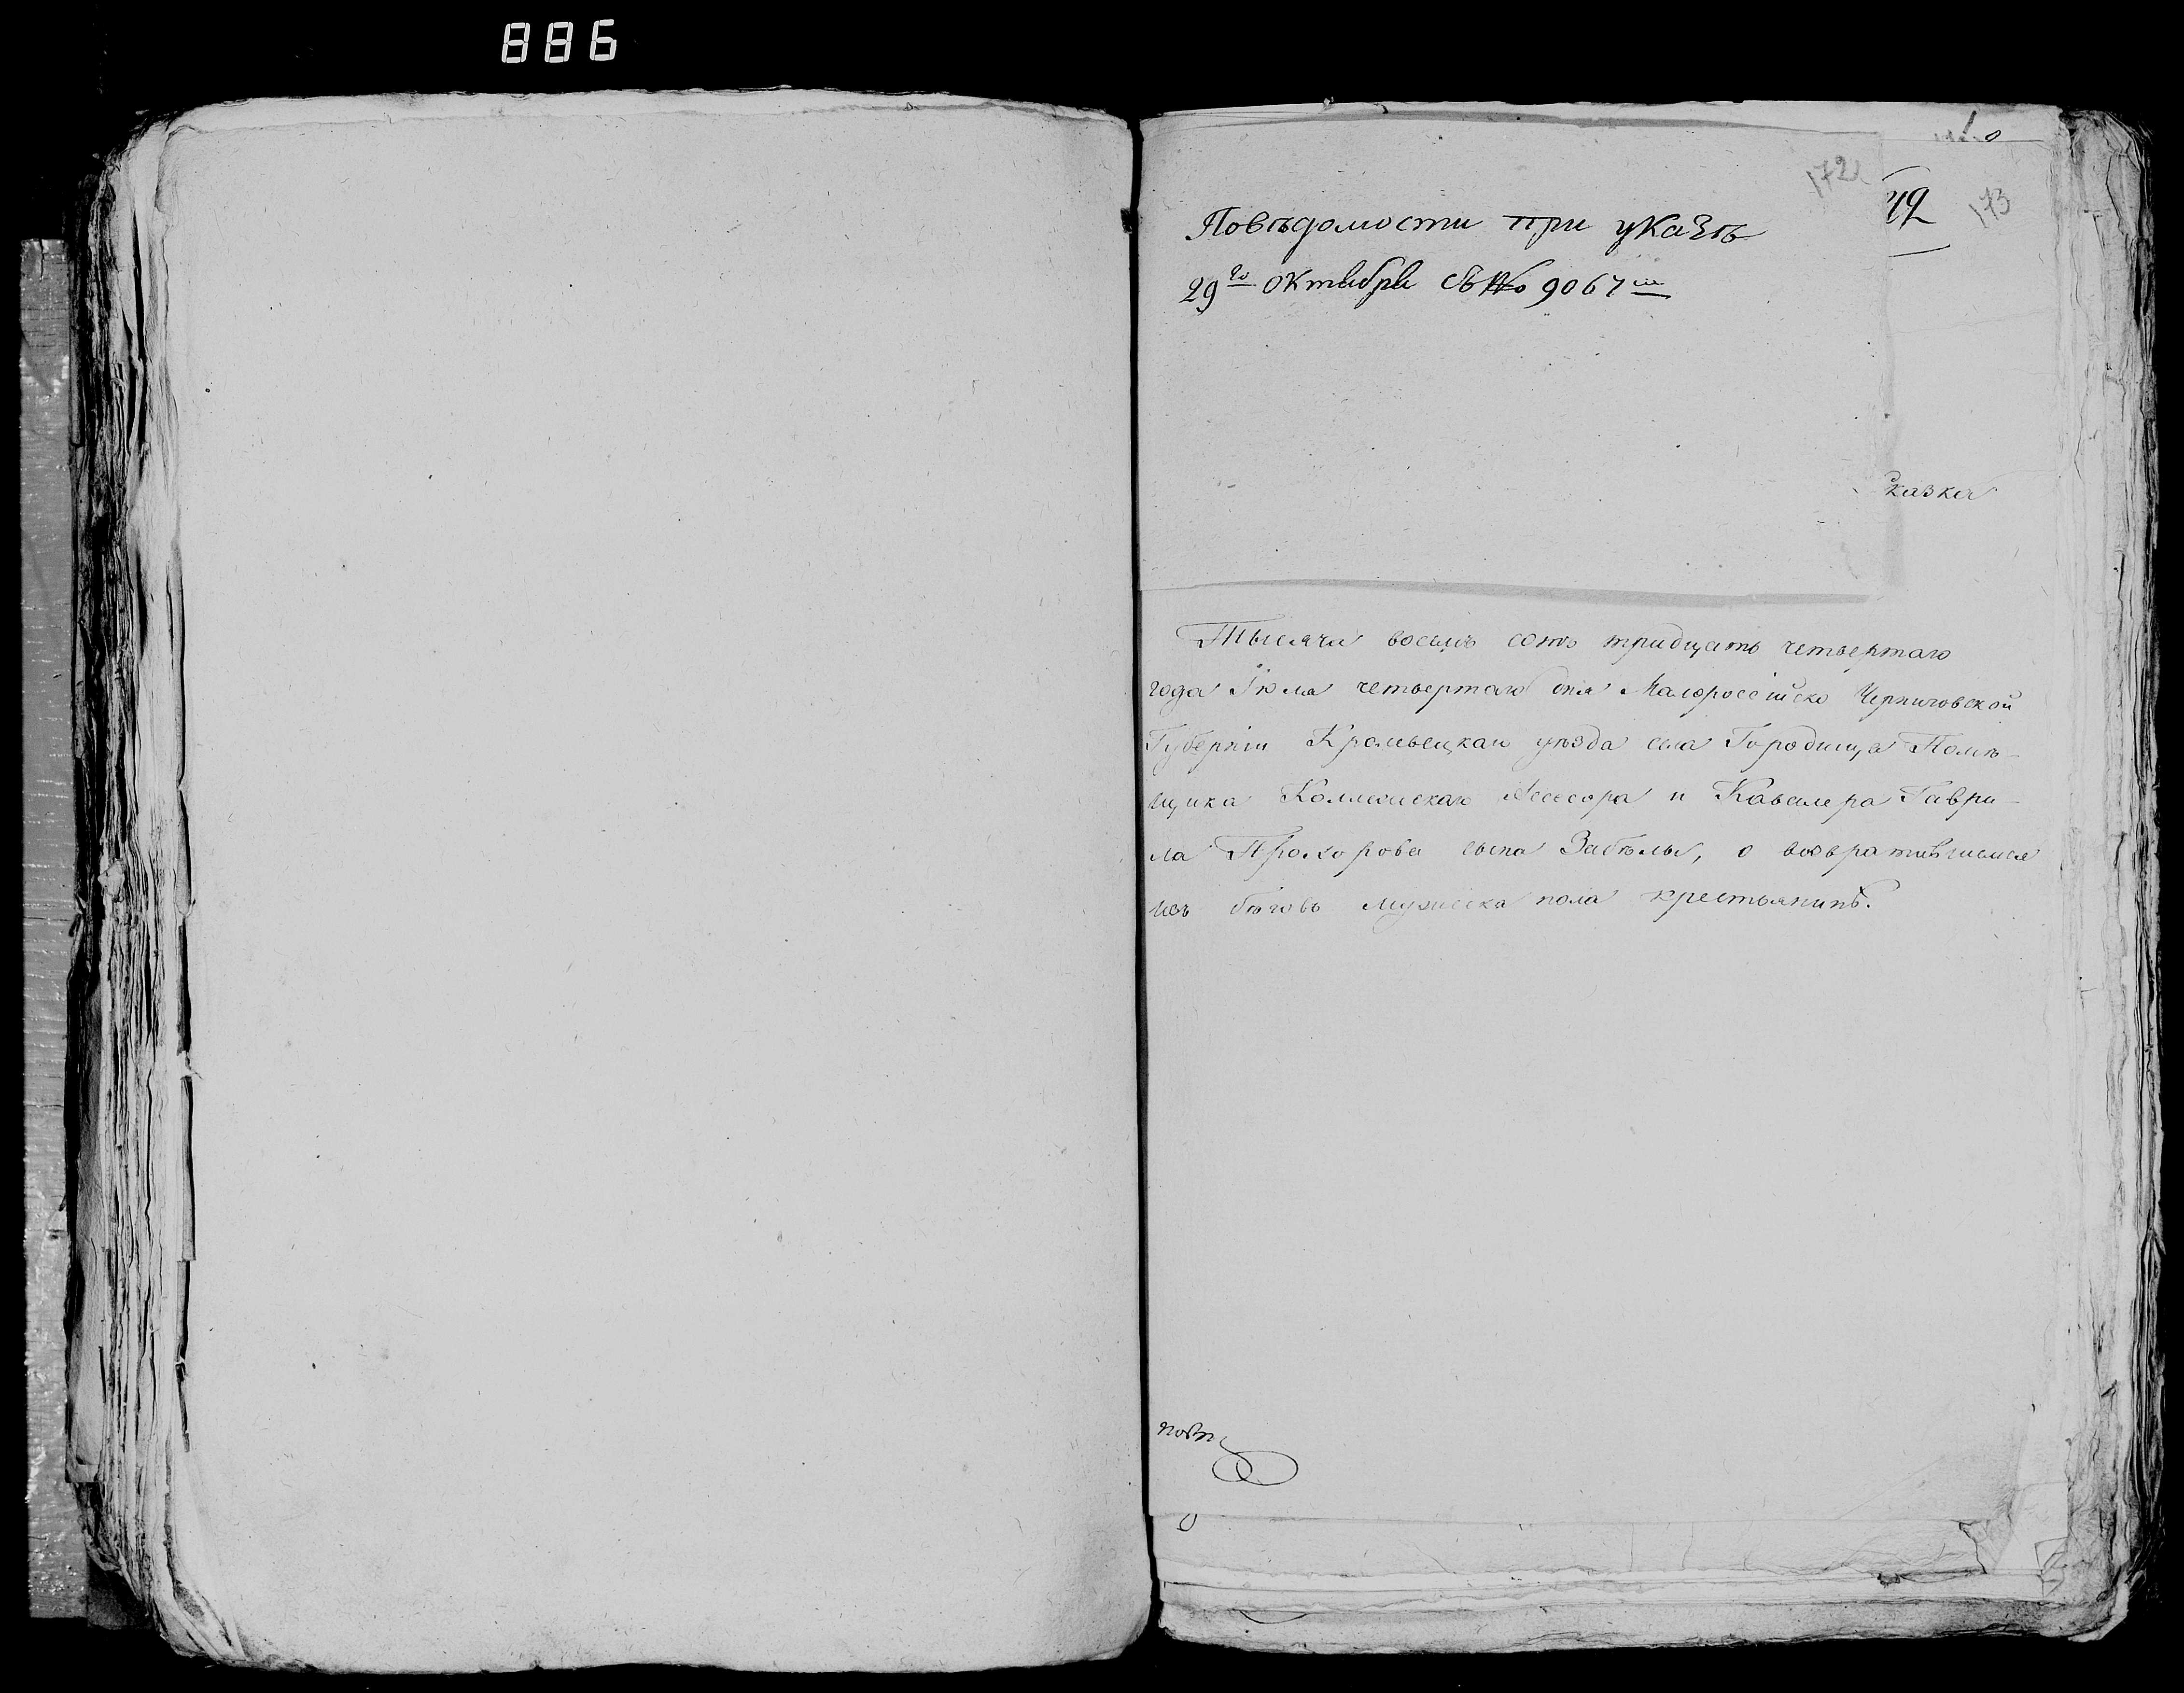 886
172
49
173
Поведомости при указѣ
29го октября съ №о 9067м
казка
Тысяча восемь сотъ тридцать четвертаго
года Іюля четвертаго дня Малороссійско Черниговской
Губерніи Кролевецкаго уѣзда села Городища Помѣ-
щика Коллежскаго Асессора и Кавалера Гаври-
ла Прохорова сына Забѣлы, о возвратившемся
изъ бѣговъ мужеска пола крестьянинѣ.